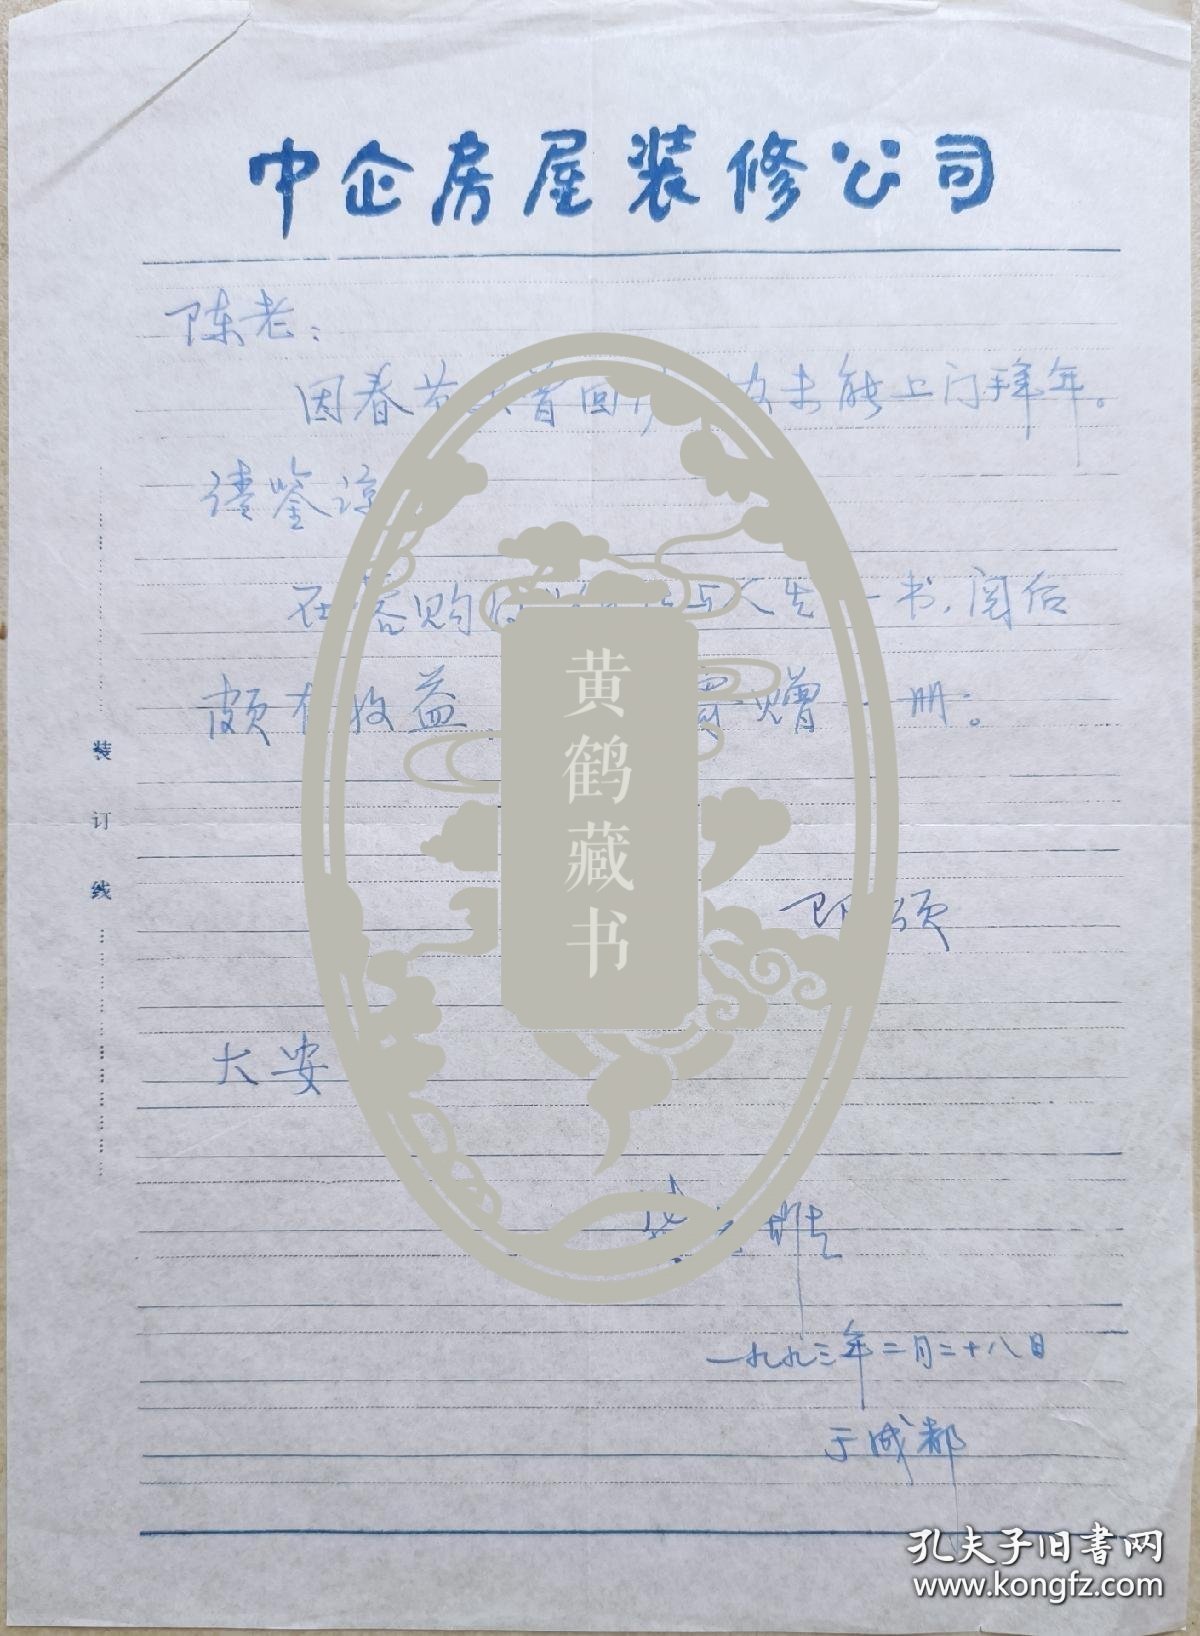 中企房屋装修公司
陈老：
因春节 首回 未能上门拜年。
请鉴谅
在蓉购 与人生一书，阅后
颇有收益 赠一册。
即颂
大安
一九九三年二月二十八日
于成都
装订线
黄鹤藏书
孔夫子旧书网
www.kongfz.com